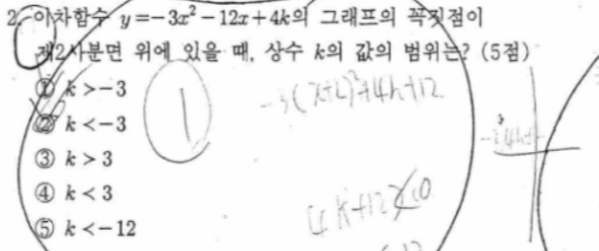 2. 이차함수 y=-3x²-12x+4k의 그래프의 꼭짓점이
제2사분면 위에 있을 때, 상수 k의 값의 범위는? (5점)
① k>-3
② k<-3
③ k>3
④ k<3
⑤ k<-12
1
-3(x+2)²+4k+12
4k+12